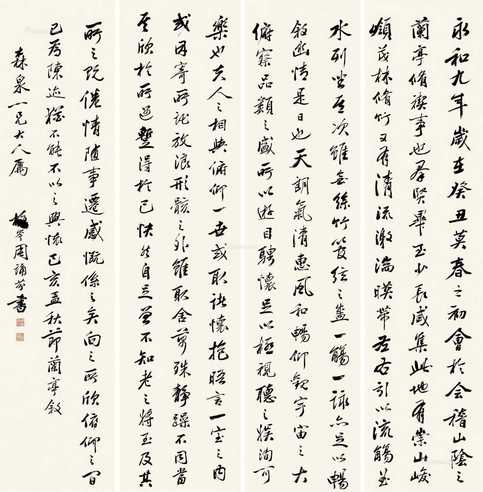 永和九年歲在癸丑莫春之初會於会稽山陰之
蘭亭脩禊事也羣賢畢至少長咸集此地有崇山峻
嶺茂林脩竹又有清流激湍暎帶左右引以流觴曲
水列坐其次雖無絲竹管弦之盛一觴一詠亦足以暢
敘幽情是日也天朗氣清惠風和暢仰觀宇宙之大
俯察品類之盛所以遊目騁懷足以極視聽之娛洵可
樂也夫人之相與俯仰一世或取諸懷抱晤言一室之内
或因寄所託放浪形骸之外雖取舍萬殊靜躁不同當
其欣於所遇暫得於己快然自足曾不知老之將至及其
所之既倦情隨事遷感慨係之矣向之所欣俯仰之間
已為陳迹猶不能不以之興懷己亥孟秋節蘭亭敘
森泉一兄大人屬
周誦芬書